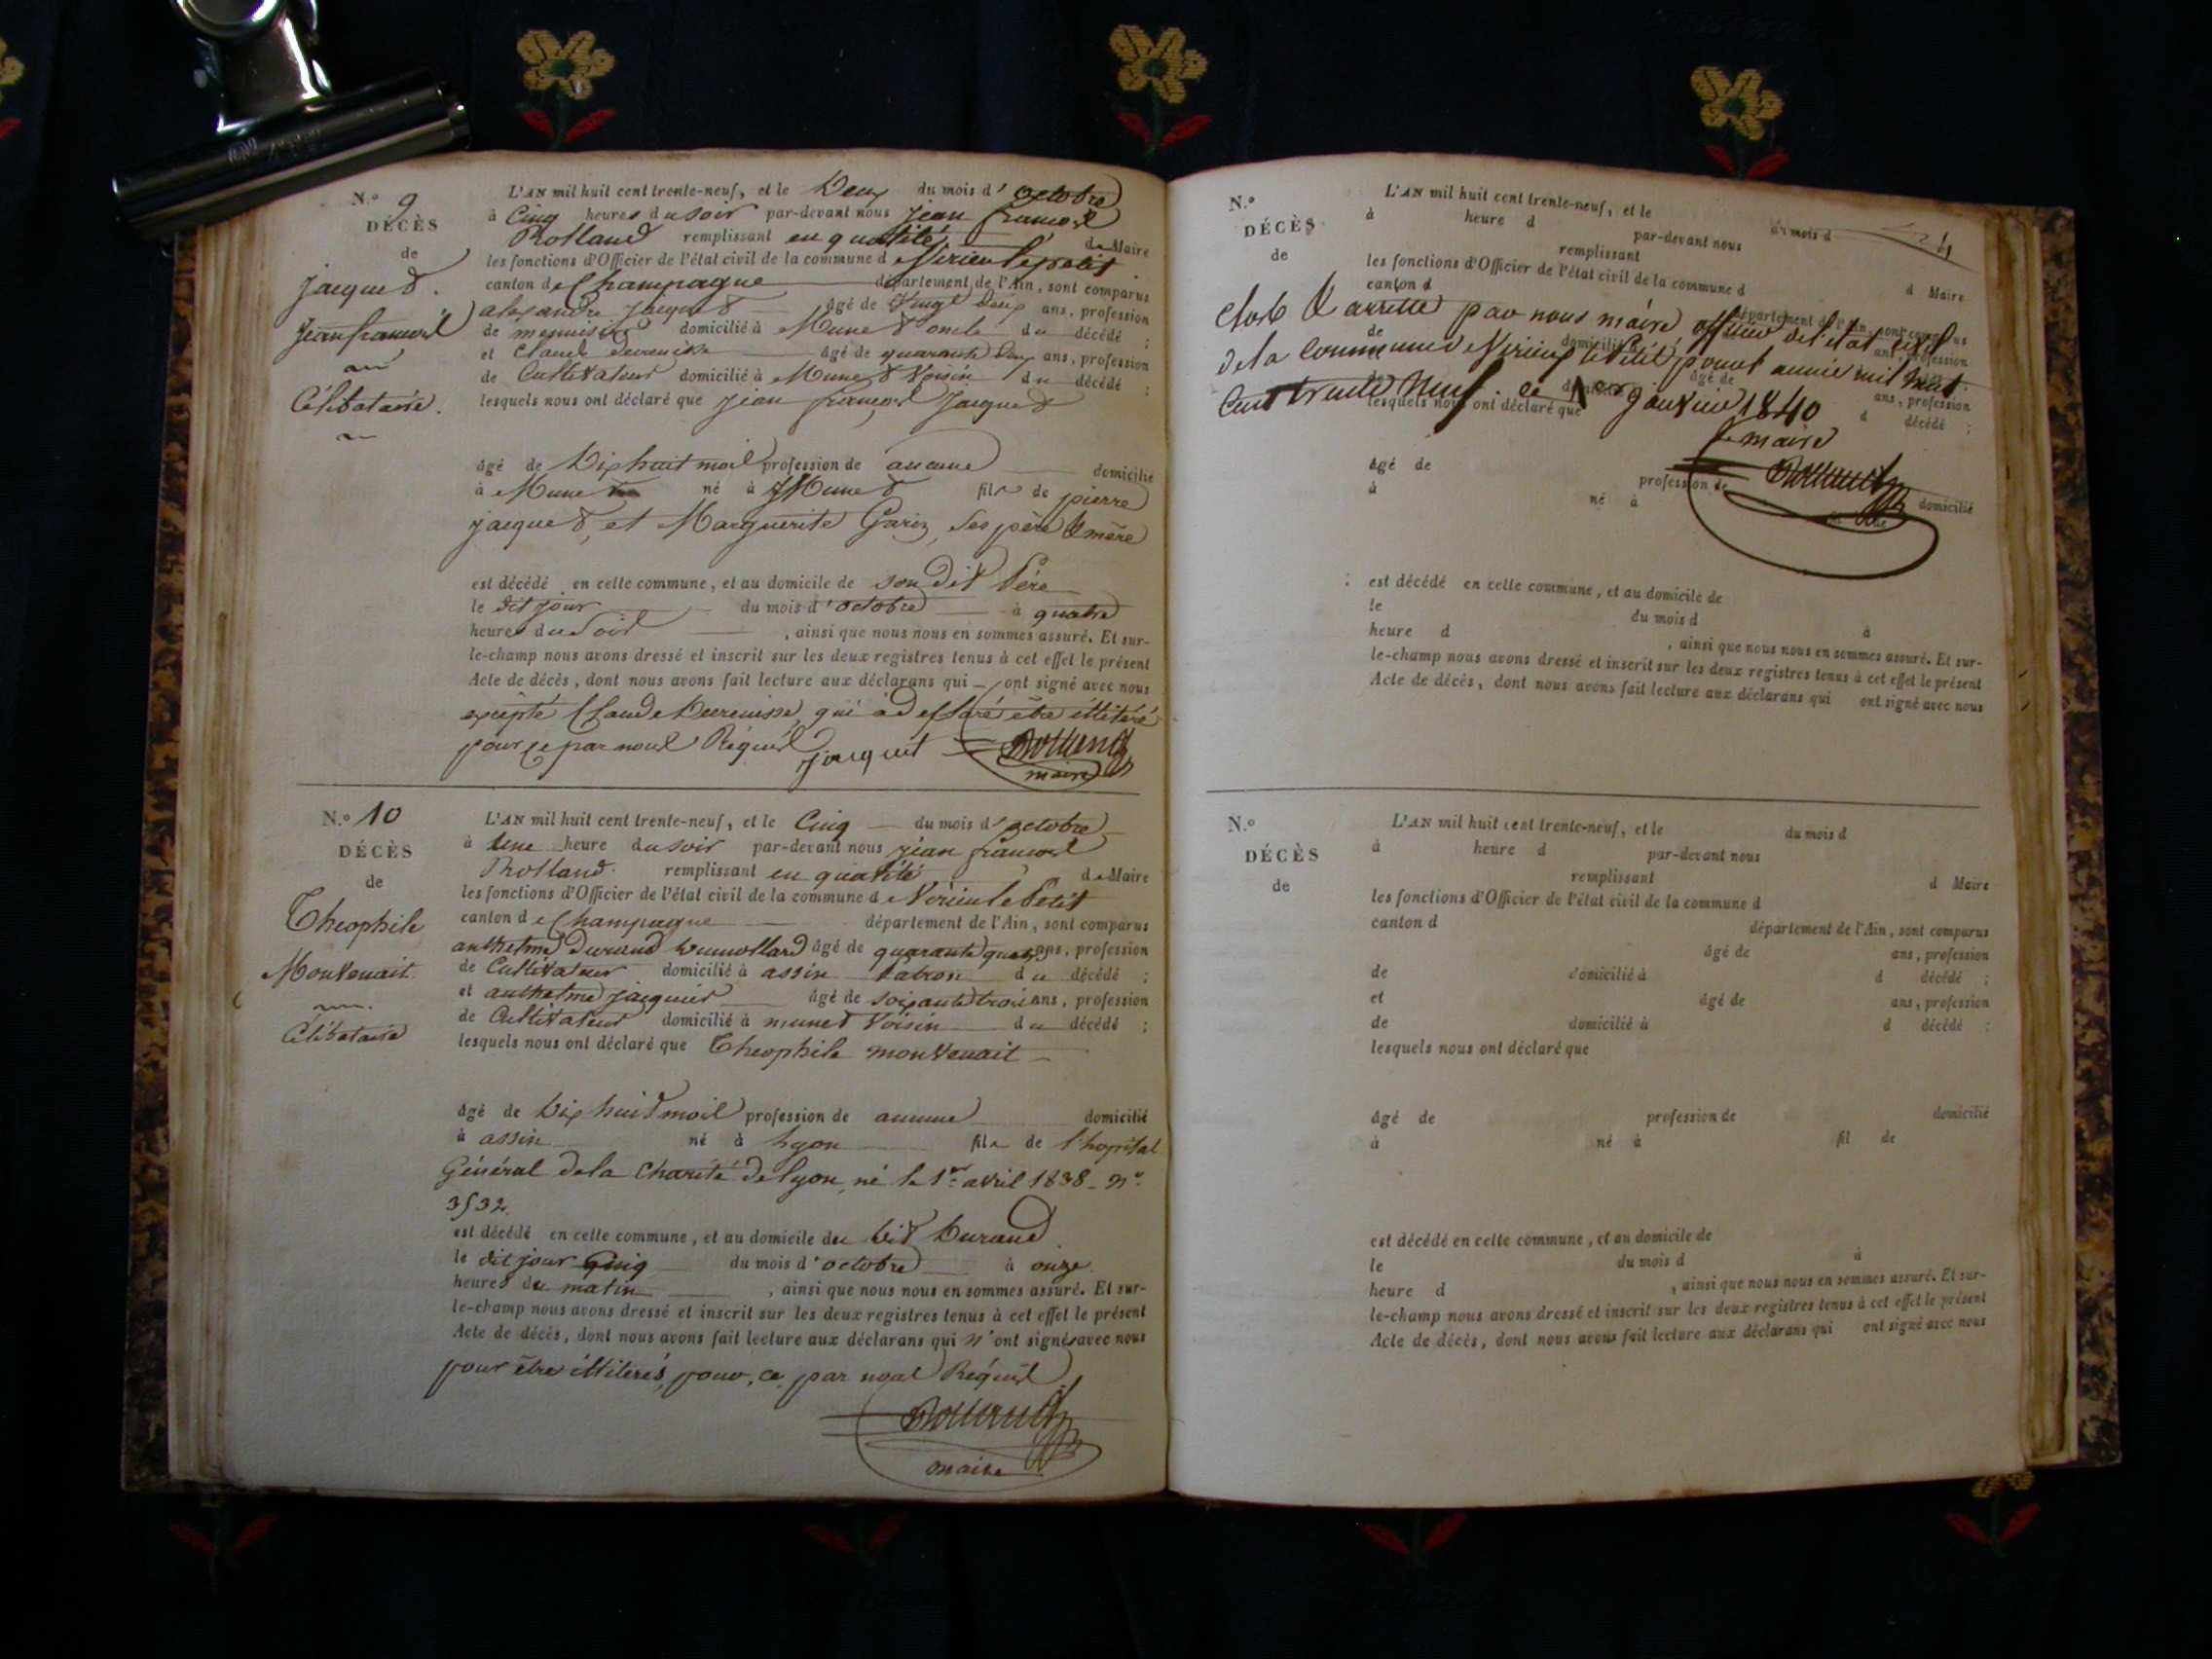 N.° 9
DÉCÈS
de
Jacquet
Jean françois
Célibataire.
L'AN mil huit cent trente-neuf, et le Deux du mois d'octobre
à Cinq heures du soir par-devant nous jean françois
Rolland remplissant en qualité de Maire
les fonctions d'Officier de l'état civil de la commune de Virieu le petit
canton de Champagne département de l'Ain, sont comparus
alexandre jacquet âgé de Vingt Deux ans, profession
de menuisier domicilié à Munet oncle du décédé ;
et Claude âgé de quarante Deux ans, profession
de Cultivateur domicilié à Munet Voisin du décédé ;
lesquels nous ont déclaré que jean françois Jacquet
âgé de Dix huit mois profession de aucune domicilié
à Munet né à Munet fils de pierre
jacquet, et Marguerite Gariz, ses père & mère
est décédé en cette commune, et au domicile de son dit Père
le dit jour du mois d'octobre à quatre
heures du Soir, ainsi que nous nous en sommes assuré. Et sur-
le-champ nous avons dressé et inscrit sur les deux registres tenus à cet effet le présent
Acte de décès, dont nous avons fait lecture aux déclarans qui ont signé avec nous
excepté Claude qui a déclaré être illitéré
pour ce par nous Réquis
jacquet Rolland
maire
N.° 10
DÉCÈS
de
Theophile
Montenait
Célibataire
L'AN mil huit cent trente-neuf, et le Cinq du mois d'octobre
à Une heure du soir par-devant nous jean françois
Rolland remplissant en qualité de Maire
les fonctions d'Officier de l'état civil de la commune de Virieu le Petit
canton de Champagne département de l'Ain, sont comparus
anthelme Durand Dumollard âgé de quarante quatre ans, profession
de Cultivateur domicilié à assin Patron du décédé ;
et anthelme jacquier âgé de soixante trois ans, profession
de Cultivateur domicilié à munet Voisin du décédé ;
lesquels nous ont déclaré que Theophile montenait
âgé de Dix huit mois profession de aucune domicilié
à assin né à Lyon fils de l'hopital
Général de la Charité de lyon, né le 1er avril 1838 - n°
3532.
est décédé en cette commune, et au domicile du Dit Durand
le dit jour Cinq du mois d'octobre à onze
heures du matin, ainsi que nous nous en sommes assuré. Et sur-
le-champ nous avons dressé et inscrit sur les deux registres tenus à cet effet le présent
Acte de décès, dont nous avons fait lecture aux déclarans qui n'ont signés avec nous
pour être illitérés, pour ce par nous Réquis
Rolland
maire
N.°
DÉCÈS
de
L'AN mil huit cent trente-neuf, et le du mois d
à heure d par-devant nous
remplissant d Maire
les fonctions d'Officier de l'état civil de la commune d
canton d département de l'Ain, sont comparus
Clos & arretté par nous maire officier de l'état civil
de âgé de ans, profession
de la Commune de Virieux le Petit pour année mil huit
Cent trente Neuf. le 1er janvier 1840
de domicilié à d décédé ;
lesquels nous ont déclaré que
le maire
Rolland
âgé de profession de domicilié
à né à
est décédé en cette commune, et au domicile de
le du mois d à
heure d, ainsi que nous nous en sommes assuré. Et sur-
le-champ nous avons dressé et inscrit sur les deux registres tenus à cet effet le présent
Acte de décès, dont nous avons fait lecture aux déclarans qui ont signé avec nous
N.°
DÉCÈS
de
L'AN mil huit cent trente-neuf, et le du mois d
à heure d par-devant nous
remplissant d Maire
les fonctions d'Officier de l'état civil de la commune d
canton d département de l'Ain, sont comparus
âgé de ans, profession
de domicilié à d décédé ;
et âgé de ans, profession
de domicilié à d décédé ;
lesquels nous ont déclaré que
âgé de profession de domicilié
à né à fil de
est décédé en cette commune, et au domicile de
le du mois d à
heure d, ainsi que nous nous en sommes assuré. Et sur-
le-champ nous avons dressé et inscrit sur les deux registres tenus à cet effet le présent
Acte de décès, dont nous avons fait lecture aux déclarans qui ont signé avec nous